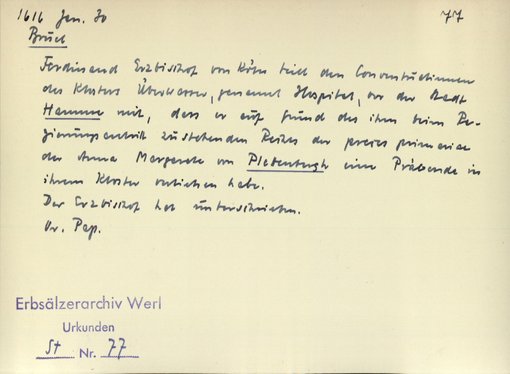 1616 Jan. 30
77
Brüel
Ferdinand Erzbischof von Köln teilt den Conventualinnen
des Klosters Überwasser, genannt Hospital, vor der Stadt
Hamme mit, dass er auf Grund des ihm beim Re-
gierungsantritt zustehenden Rechtes der preces primariae
der Anna Margareta von Plettenbergh eine Präbende in
ihrem Kloster verliehen habe.
Der Erzbischof hat unterschrieben.
Or. Pap.
Erbsälzerarchiv Werl
Urkunden
St Nr. 77